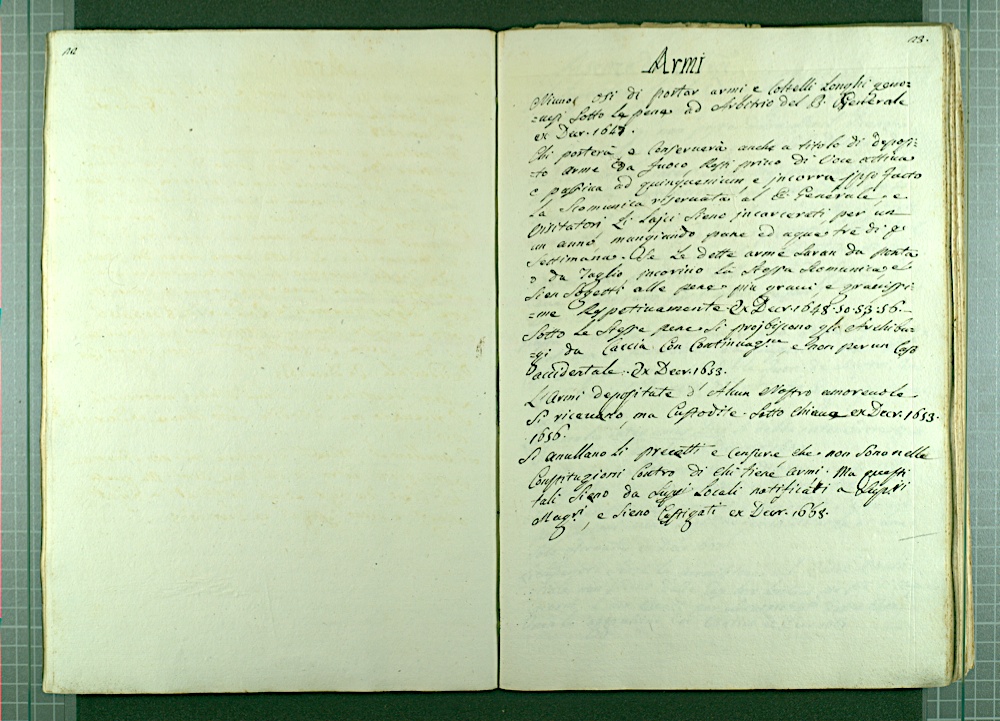 122
123.
Armi
Niuno osi di portar armi e Coltelli Longhi geno=
=uesi sotto le pene ad Arbitrio del P. Generale
ex Decr. 1647.
Chi porterà, o Conseruerà anche a titolo di deposi=
=to arme da fuoco, resti priuo di Voce attiua
e passiua ad quinquenium e jncorra jpso facto
La Scomunica riseruata al P. Generale, e
Visitatori. Li Lajci siene jncarcerati per un
un anno, mangiando pane ed aqua tre di p.
Settimana. Se Le dette arme saran da ponta
o da Taglio jncorino La stessa Scomunica, e
sien sogetti alle pene più graui e grauissi=
=me respetiuamente. Ex Decr. 1648. 50. 53. 56.
Sotto Le stesse pene si projbiscono gli Archibu=
=gi da Caccia. Con Continuazne e non per un Caso
accidentale. Ex Decr. 1653.
L'Armi depositate d'Alcun Nostro amoreuole
si riceuano, ma Custodite sotto Chiaue ex Decr. 1653.
1656.
Si anullano Li precetti e Censure che non sono nelle
Constituzioni Contro di chi tiene armi. Ma questi
tali sieno da Supri Locali notificati a Supri
Magri, e sieno Castigati ex Decr. 1668.